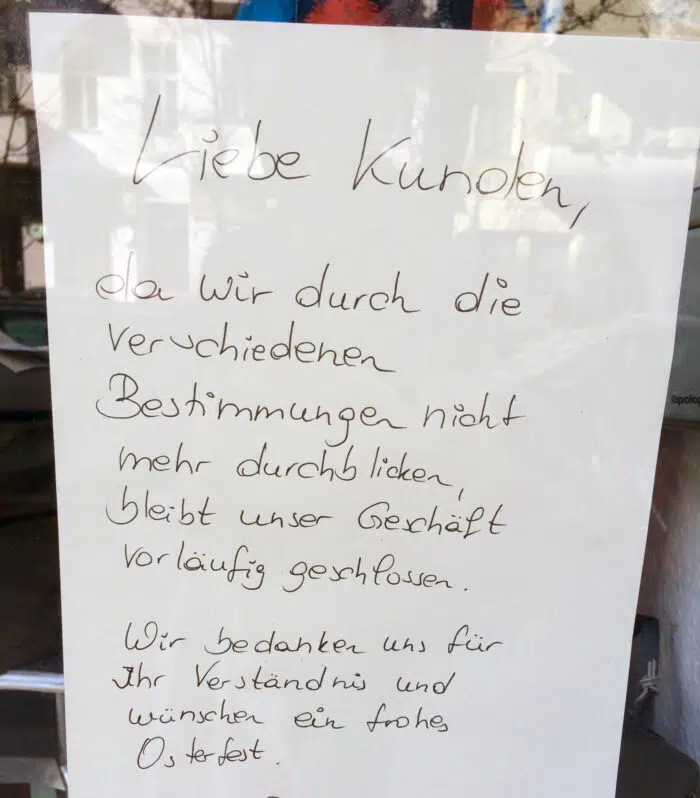 Liebe Kunden,
da wir durch die
verschiedenen
Bestimmungen nicht
mehr durchblicken,
bleibt unser Geschäft
vorläufig geschlossen.
Wir bedanken uns für
Ihr Verständnis und
wünschen ein frohes
Osterfest.